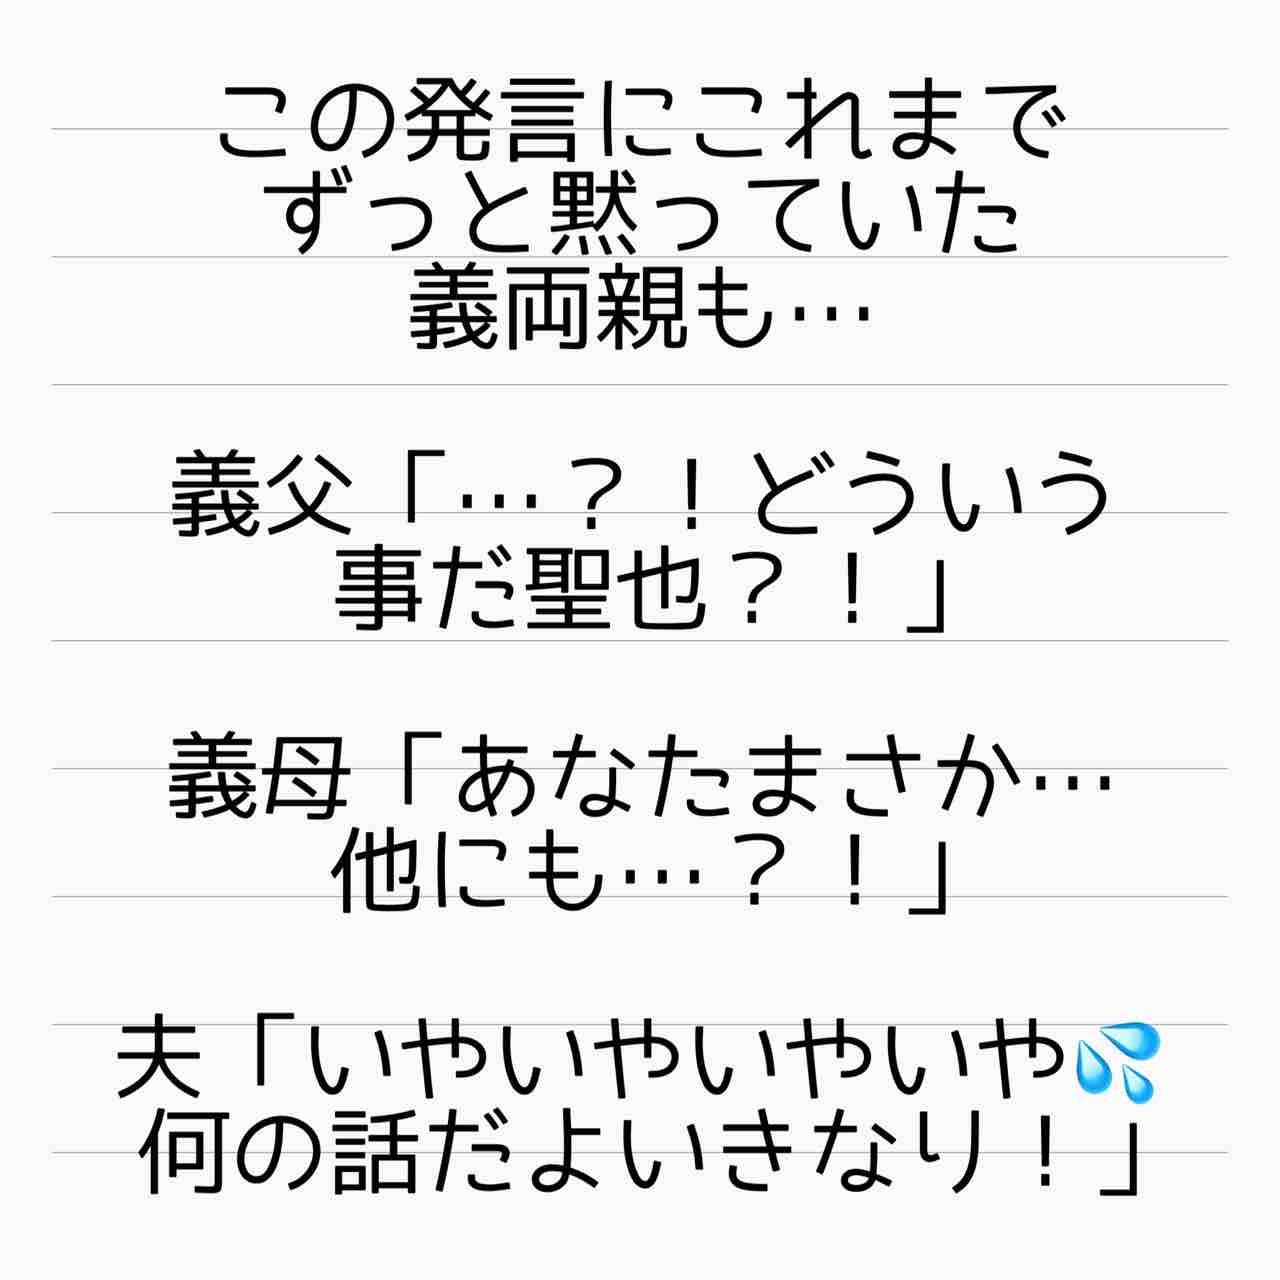 この発言にこれまで
ずっと黙っていた
義両親も…
義父「…？！どういう
事だ聖也？！」
義母「あなたまさか…
他にも…？！」
夫「いやいやいやいや💦
何の話だよいきなり！」